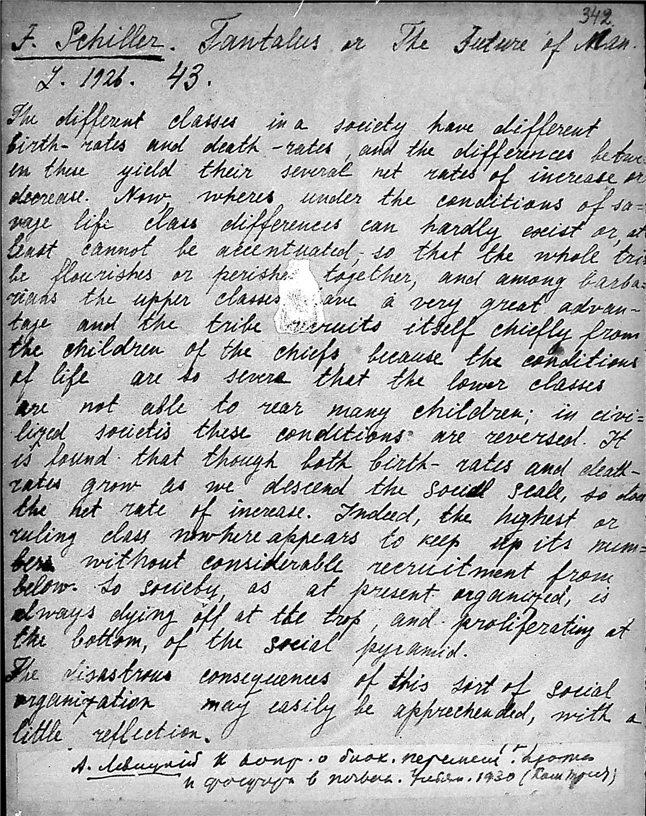 342
F. Schiller. Tantalus or The Future of Man.
L. 1926. 43.
The different classes in a society have different
birth-rates and death-rates, and the differences betwe-
en these yield their several net rates of increase or
decrease. Now, wheres under the conditions of sa=
vage life class differences can hardly exist or at
least cannot be accentuated, so that the whole tri
be flourishes or perishes together, and among barba=
rians the upper classes have a very great advan-
tage and the tribe recruits itself chiefly from
the children of the chiefs because the conditions
of life are so severe that the lower classes
are not able to rear many children; in civi=
lized societis these conditions are reversed. It
is found that though both birth-rates and death-
rates grow as we descend the social scale, so does
the net rate of increase. Indeed, the highest or
ruling class nowhere appears to keep up its num=
bers without considerable recruitment from
below. So society, as at present organized, is
always dying off at the trop, and proliferating at
the bottom, of the social pyramid.
The disastrous consequences of this sort of social
organization may easily be apprechended, with a
little reflection.
А. к вопр. о биол.
и в 1930